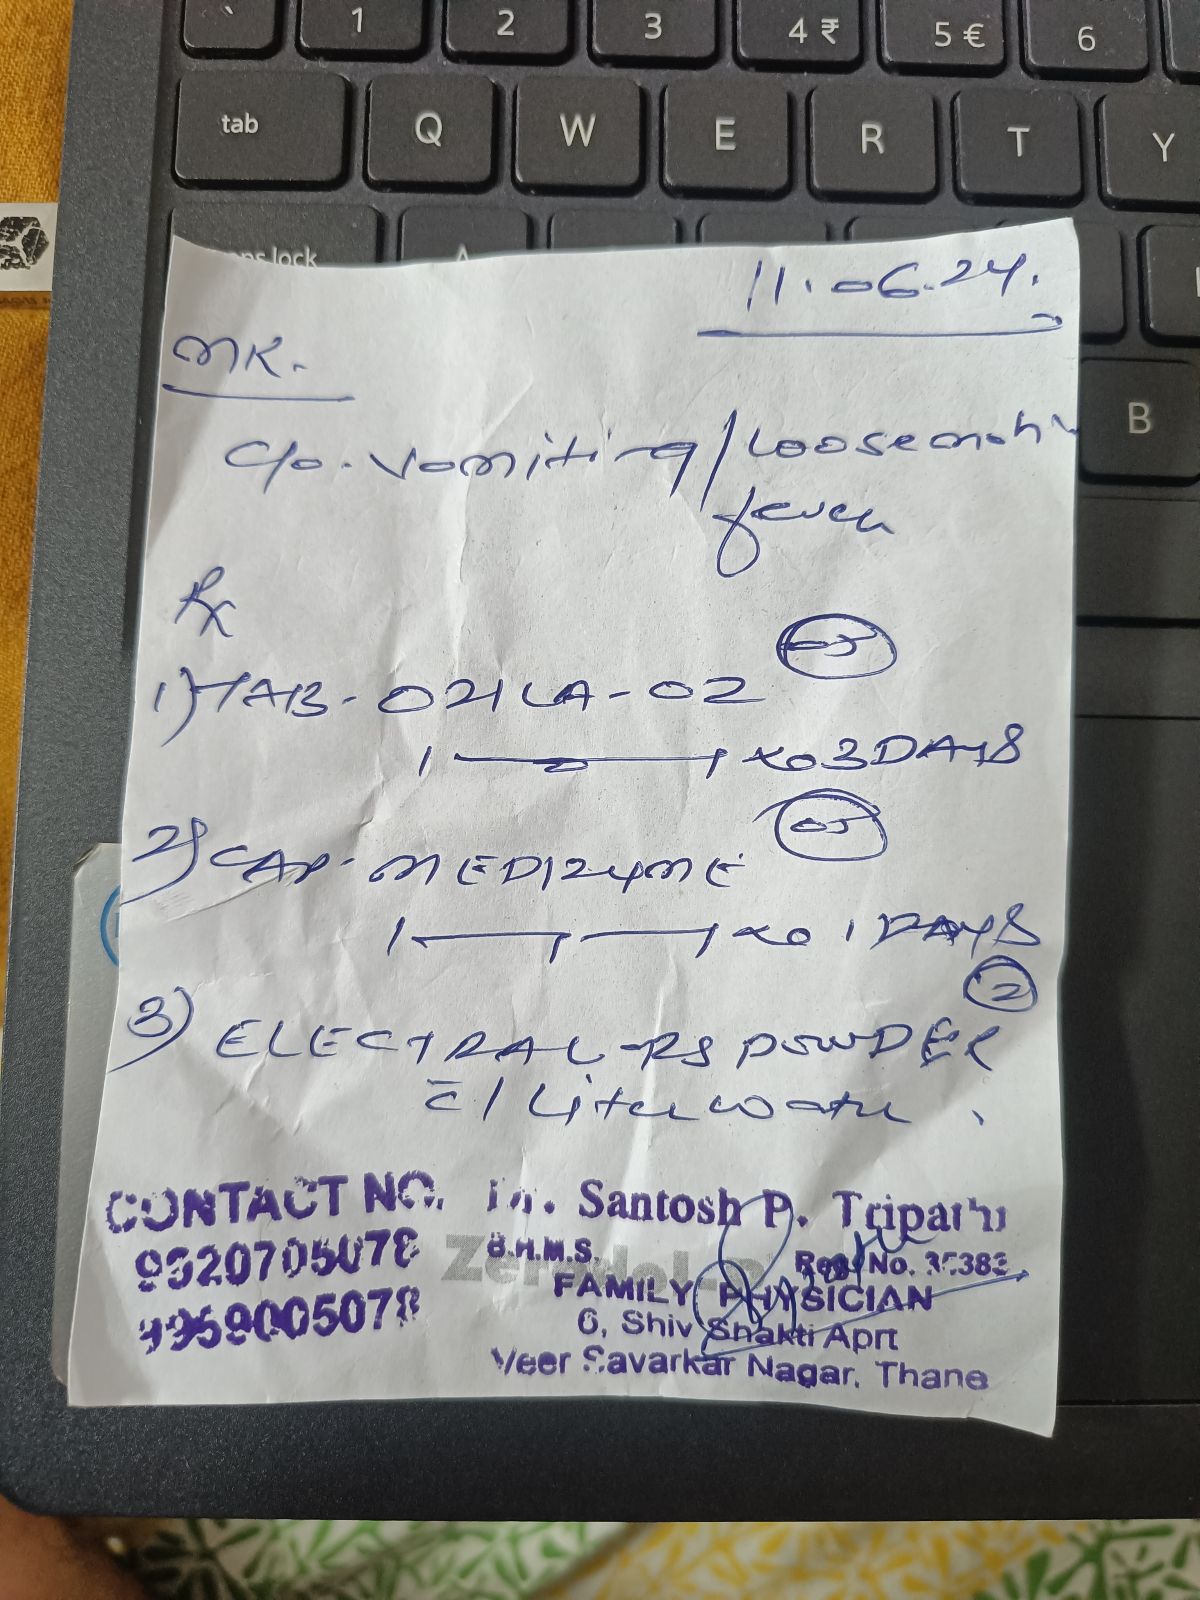 ` 1 2 3 4 ₹ 5 € 6
tab Q W E R T Y
lock A
B
11.06.24.
MR.
C/o. vomiting / Loose
fever
Rx
05
1) TAB- OZILA-02
1 —o— 1 x 03 DAYS
05
2) CAP- MEDIZYME
1 — 1 — 1 x 01 DAYS
2
3) ELECTRAL-RS POWDER
c̄ 1 Liter water.
CONTACT NO.
9959005078
Dr. Santosh P. Tripathi
B.H.M.S.
Reg. No.
FAMILY PHYSICIAN
6, Shiv Shakti Aprt
Veer Savarkar Nagar, Thane